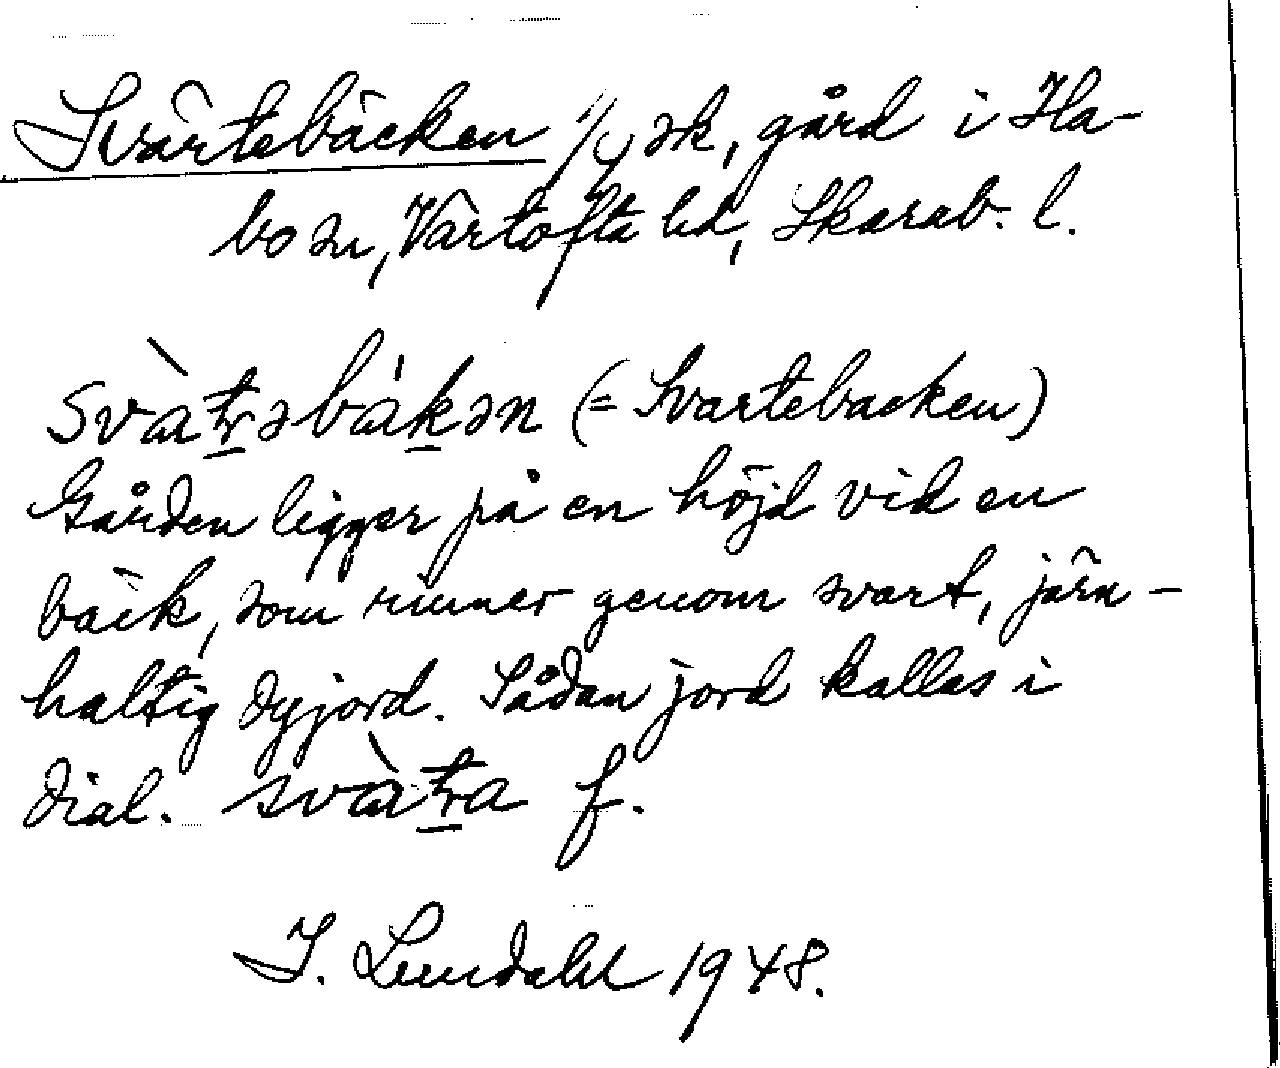 Svärtebäcken 1/4 sk, gård i Ha-
bo sn, Vartofta hd, Skarab. l.
svàt̠rəbák̠ən (= Svartebacken)
Gården ligger på en höjd vid en
bäck, som rinner genom svart, järn-
haltig dyjord. Sådan jord kallas i
dial. svàt̠ra f.
I. Lundahl 1948.